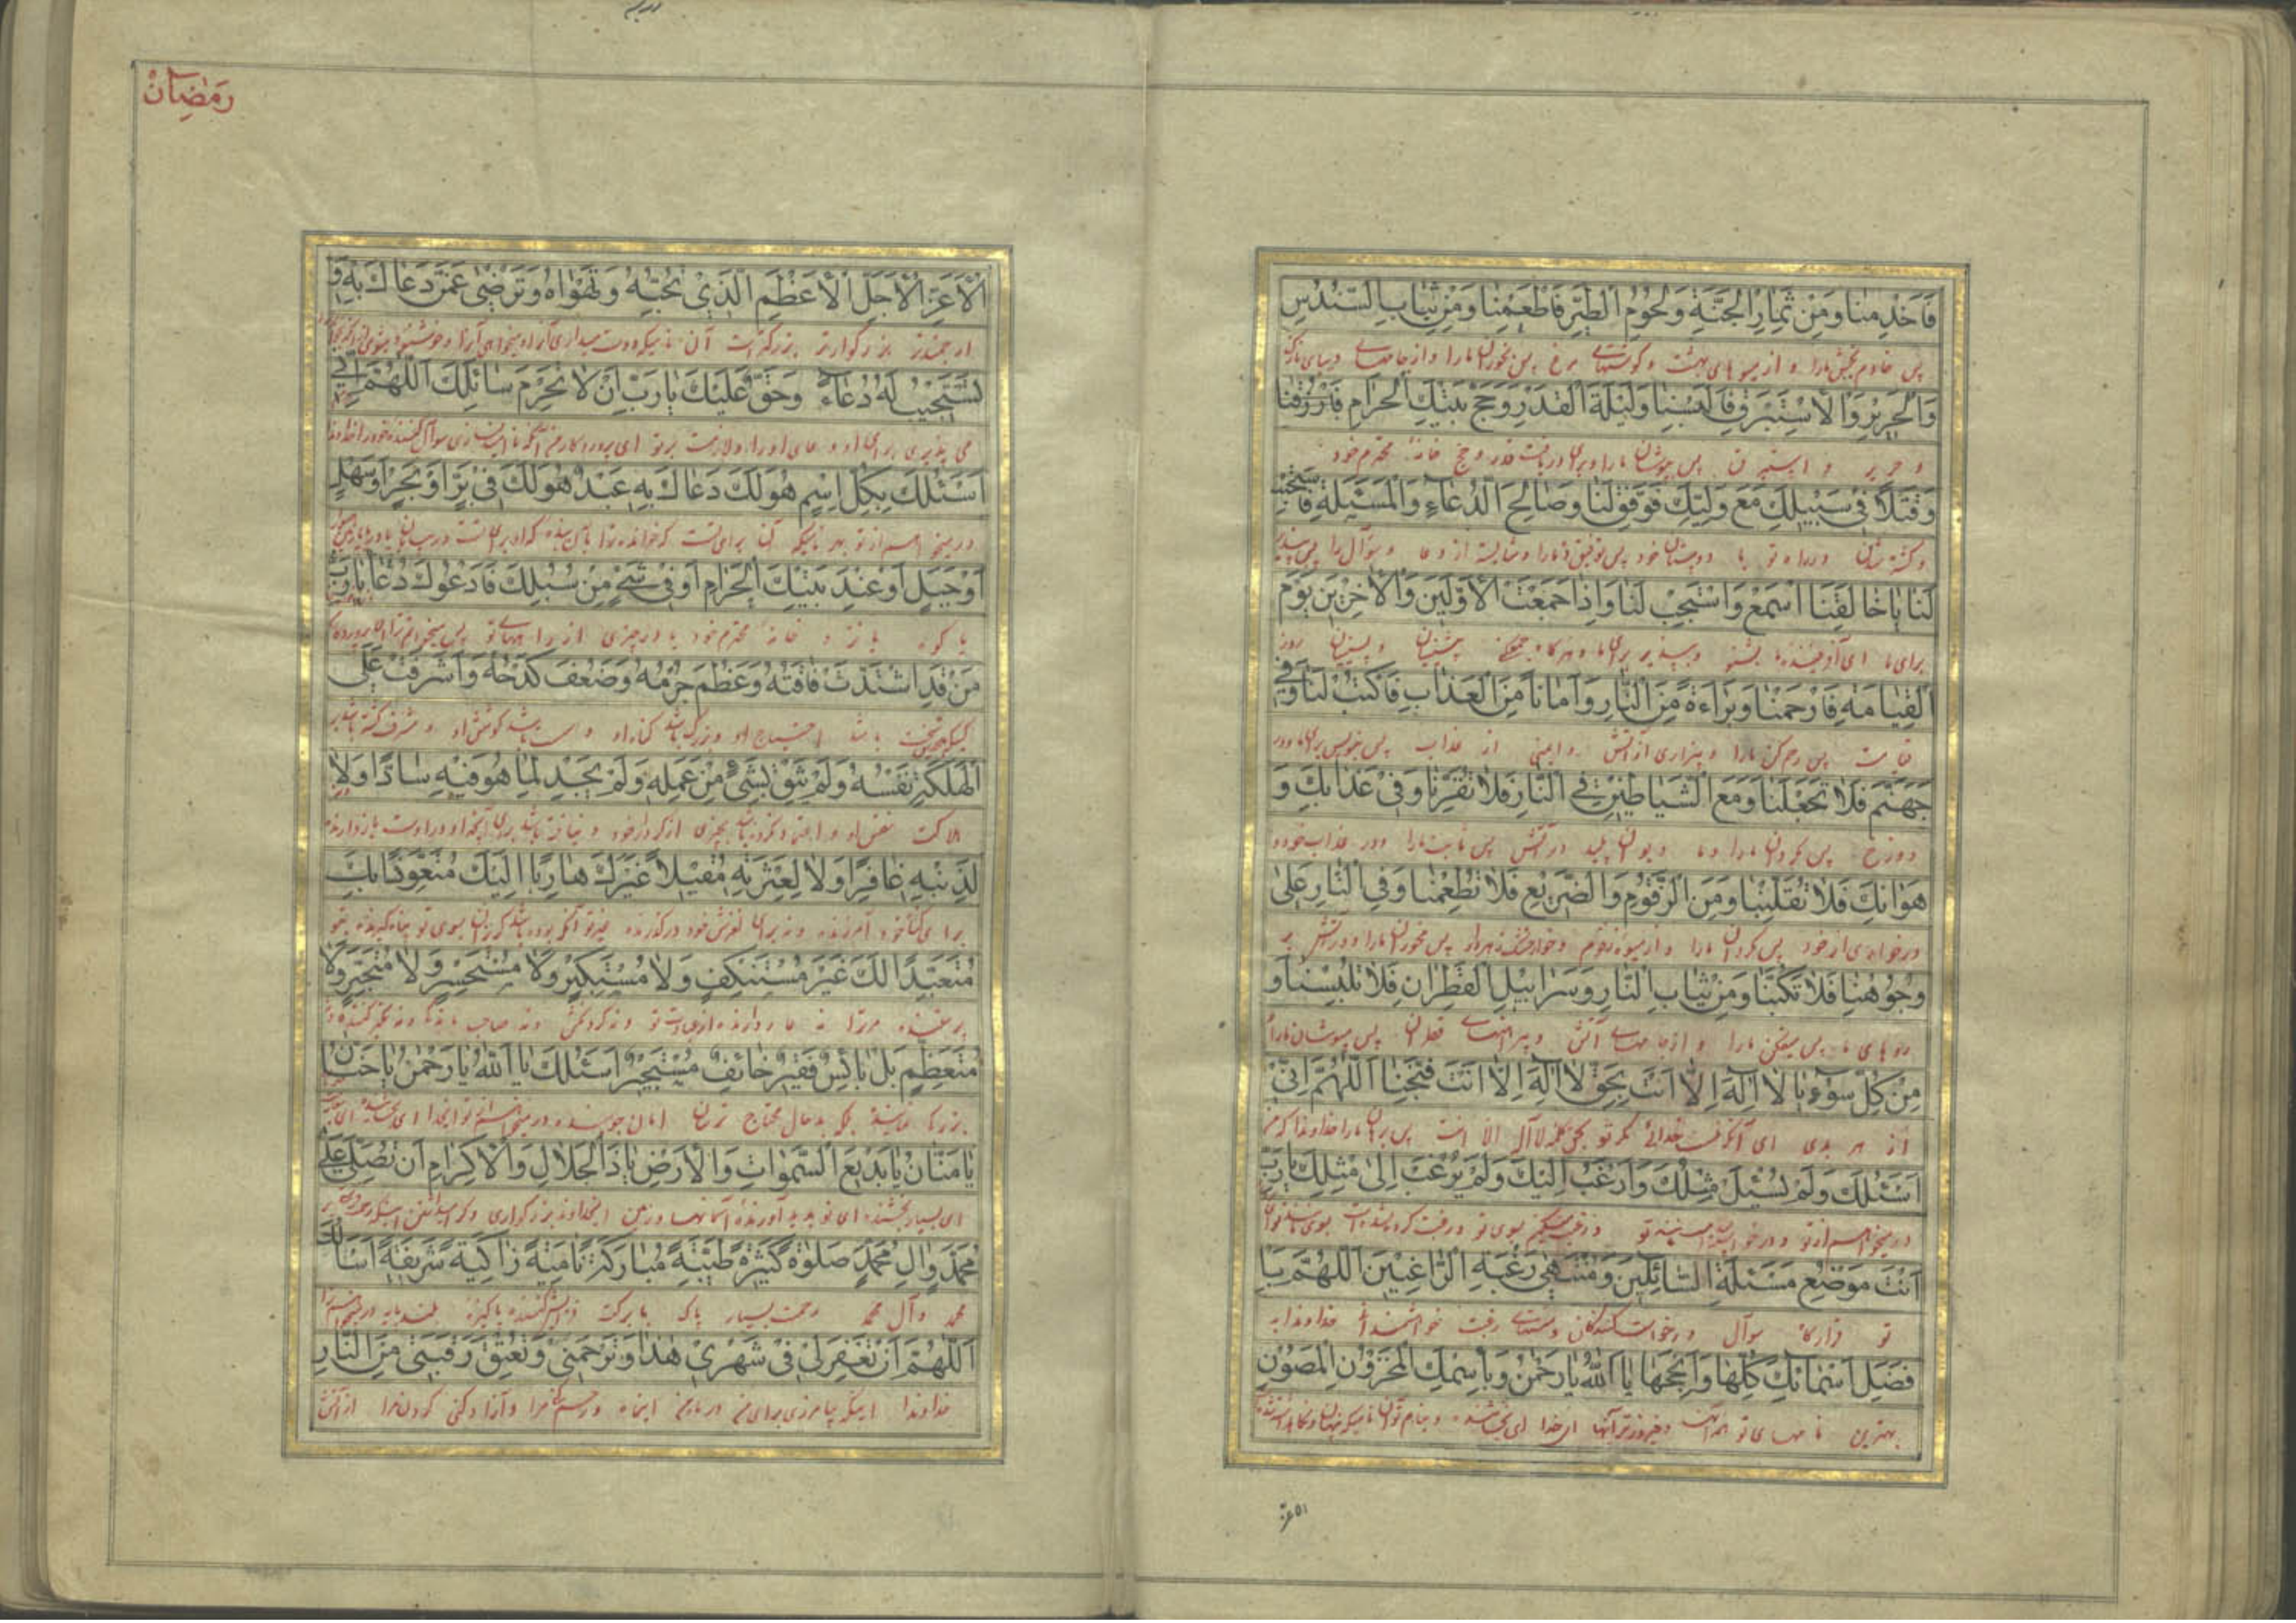 فَاَخْدِمْنَا وَمِنْ ثِمَارِ الْجَنَّةِ وَلُحُومِ الطَّيْرِ فَاَطْعِمْنَا وَمِنْ ثِيَابِ السُّنْدُسِ
پس خادم بخش ما را و از میوهای بهشت و گوشتهای مرغ پس بخوران ما را و از جامهای دیبای نازک
وَالْحَرِيرِ وَالْاِسْتَبْرَقِ فَاَلْبِسْنَا وَلَيْلَةَ الْقَدْرِ وَحَجَّ بَيْتِكَ الْحَرَامِ فَارْزُقْنَا
و حریر و استبرق پس بپوشان ما را و برای دریافت قدر و حج خانه محترم خود
وَقَتْلًا فِي سَبِيلِكَ مَعَ وَلِيِّكَ فَوَفِّقْ لَنَا وَصَالِحَ الدُّعَاءِ وَالْمَسْئَلَةِ فَاسْتَجِبْ
و کشته شدن در راه تو با دوستان خود پس توفیق ده ما را و شایسته از دعا و سوآل را پس بپذیر
لَنَا يَا خَالِقَنَا اسْمَعْ وَاسْتَجِبْ لَنَا وَاِذَا جَمَعْتَ الْاَوَّلِينَ وَالْاٰخِرِينَ يَوْمَ
برای ما ای آفریننده ما بشنو و بپذیر برای ما و هرگاه جمع کنی پیشینیان و پسینیان روز
الْقِيَامَةِ فَارْحَمْنَا وَبَرَاءَةً مِنَ النَّارِ وَاَمَانًا مِنَ الْعَذَابِ فَاكْتُبْ لَنَا وَفِي
قیامت پس رحم کن ما را و بیزاری از آتش و ایمنی از عذاب پس بنویس برای ما و در
جَهَنَّمَ فَلَا تَجْعَلْنَا وَمَعَ الشَّيَاطِينِ فِي النَّارِ فَلَا تَقْرِنَّا وَفِي عَذَابِكَ وَ
دوزخ پس مگردان ما را و با دیوان پلید در آتش پس ما را و در عذاب خود و
هَوَانِكَ فَلَا تُقَلِّبْنَا وَمِنَ الزَّقُّومِ وَالضَّرِيعِ فَلَا تُطْعِمْنَا وَفِي النَّارِ عَلَى
در خواری از خود پس مگردان ما را و از میوه زقوم و پس مخوران ما را و در آتش بر
وُجُوهِنَا فَلَا تَكُبَّنَا وَمِنْ ثِيَابِ النَّارِ وَسَرَابِيلِ الْقَطِرَانِ فَلَا تُلْبِسْنَا وَ
روهای ما پس میفکن ما را و از جامهای آتش و پیراهنهای قطران پس مپوشان ما را
مِنْ كُلِّ سُوءٍ يَا لَا اِلٰهَ اِلَّا اَنْتَ بِحَقِّ لَا اِلٰهَ اِلَّا اَنْتَ فَنَجِّنَا اَللّٰهُمَّ اِنِّي
از هر بدی ای آنکه نیست خدائی مگر تو بحق کلمه لا اله الا انت پس برهان ما را خداوندا که من
اَسْئَلُكَ وَلَمْ يُسْئَلْ مِثْلُكَ وَاَرْغَبُ اِلَيْكَ وَلَمْ يُرْغَبْ اِلٰى مِثْلِكَ يَا رَبِّ
در میخواهم از تو و در خواسته نشده مثل تو و رغبت میکنم بسوی تو و رغبت کرده نشده است بسوی مانند تو
اَنْتَ مَوْضِعُ مَسْئَلَةِ السَّائِلِينَ وَمُنْتَهٰى رَغْبَةِ الرَّاغِبِينَ اَللّٰهُمَّ بِاَ
تو قرارگاه سوآل درخواست کنندگان و منتهای رغبت خواهشمندان خداوندا به
فْضَلِ اَسْمَائِكَ كُلِّهَا وَاَنْجَحِهَا يَا اَللّٰهُ يَا رَحْمٰنُ وَبِاسْمِكَ الْمَخْزُونِ الْمَصُونِ
بهترین نامهای تو همه آنها و فیروزترین آنها ای خدا ای بخشنده و بنام تو
رَمَضَانْ
الْاَعَزِّ الْاَجَلِّ الْاَعْظَمِ الَّذِي تُحِبُّهُ وَتَهْوَاهُ وَتَرْضٰى عَمَّنْ دَعَاكَ بِهِ وَ
ارجمندتر بزرگوارتر بزرگتر است آن نامیکه دوست میداری آنرا و میخواهی آنرا و خوشنود میشوی
تَسْتَجِيبُ لَهُ دُعَاءَهُ وَحَقٌّ عَلَيْكَ يَا رَبِّ اَنْ لَا تَحْرِمَ سَائِلَكَ اَللّٰهُمَّ اِنِّي
می پذیری برای او دعای او را و لازمست بر تو ای پروردگار من آنکه ناامید نسازی سوآل کننده خود را خداوندا
اَسْئَلُكَ بِكُلِّ اسْمٍ هُوَ لَكَ دَعَاكَ بِهِ عَبْدٌ هُوَ لَكَ فِي بَرٍّ اَوْ بَحْرٍ اَوْ سَهْلٍ
در میخواهم از تو بهر نامیکه آن برای تست که خوانده ترا بآن بنده که او برای تست در بیابان یا دریا
اَوْ جَبَلٍ اَوْ عِنْدَ بَيْتِكَ الْحَرَامِ اَوْ فِي شَيْءٍ مِنْ سُبُلِكَ فَاَدْعُوكَ دُعَاءَ يَا رَبِّ
یا کوه یا نزد خانه محترم خود یا در چیزی از راههای تو پس میخوانم ترا ای پروردگار
مَنْ قَدِ اشْتَدَّتْ فَاقَتُهُ وَعَظُمَ جُرْمُهُ وَضَعُفَ كَدْحُهُ وَاَشْرَفَتْ عَلَى
سخت باشد احتیاج او و بزرگ باشد گناه او و سست باشد کوشش او و مشرف گشته باشد بر
الْهَلَكَةِ نَفْسُهُ وَلَمْ يَثِقْ بِشَيْءٍ مِنْ عَمَلِهِ وَلَمْ يَجِدْ لِمَا هُوَ فِيهِ سَادًّا وَلَا
هلاکت نفس او و اعتماد نکرده باشد بچیزی از کردار خود و نیافته باشد برای آنچه او در اوست
لِذَنْبِهِ غَافِرًا وَلَا لِعَثْرَتِهِ مُقِيلًا غَيْرَكَ هَارِبًا اِلَيْكَ مُتَعَوِّذًا بِكَ
برای گناه خود آمرزنده و نه برای لغزش خود درگذرنده غیر تو گریزان بسوی تو پناه گیرنده بتو
مُتَعَبِّدًا لَكَ غَيْرَ مُسْتَنْكِفٍ وَلَا مُسْتَكْبِرٍ وَلَا مُسْتَحْسِرٍ وَلَا مُتَجَبِّرٍ وَلَا
پرستنده مر ترا نه عار دارنده از عبادت تو و نه گردنکش و نه
مُتَعَظِّمٍ بَلْ بَائِسٌ فَقِيرٌ خَائِفٌ مُسْتَجِيرٌ اَسْئَلُكَ يَا اَللّٰهُ يَا رَحْمٰنُ يَا حَنَّانُ
بلکه بدحال محتاج ترسان امان جوینده در میخواهم از تو ای خدا ای بخشنده
يَا مَنَّانُ يَا بَدِيعَ السَّمٰوَاتِ وَالْاَرْضِ يَا ذَا الْجَلَالِ وَالْاِكْرَامِ اَنْ تُصَلِّيَ عَلٰى
ای بسیار بخشنده ای نو پدید آورنده آسمانها و زمین ای خداوند بزرگواری و گرامی داشتن اینکه رحمت
مُحَمَّدٍ وَاٰلِ مُحَمَّدٍ صَلٰوةً كَثِيرَةً طَيِّبَةً مُبَارَكَةً نَامِيَةً زَاكِيَةً شَرِيفَةً اَسْاَلُكَ
محمد و آل محمد رحمت بسیار پاک با برکت پاکیزه بلند پایه
اَللّٰهُمَّ اَنْ تَغْفِرَ لِي فِي شَهْرِي هٰذَا وَتَرْحَمَنِي وَتُعْتِقَ رَقَبَتِي مِنَ النَّارِ
خداوندا اینکه بیامرزی برای من در ماه من اینماه و رحم کنی مرا و آزاد کنی گردن مرا از آتش